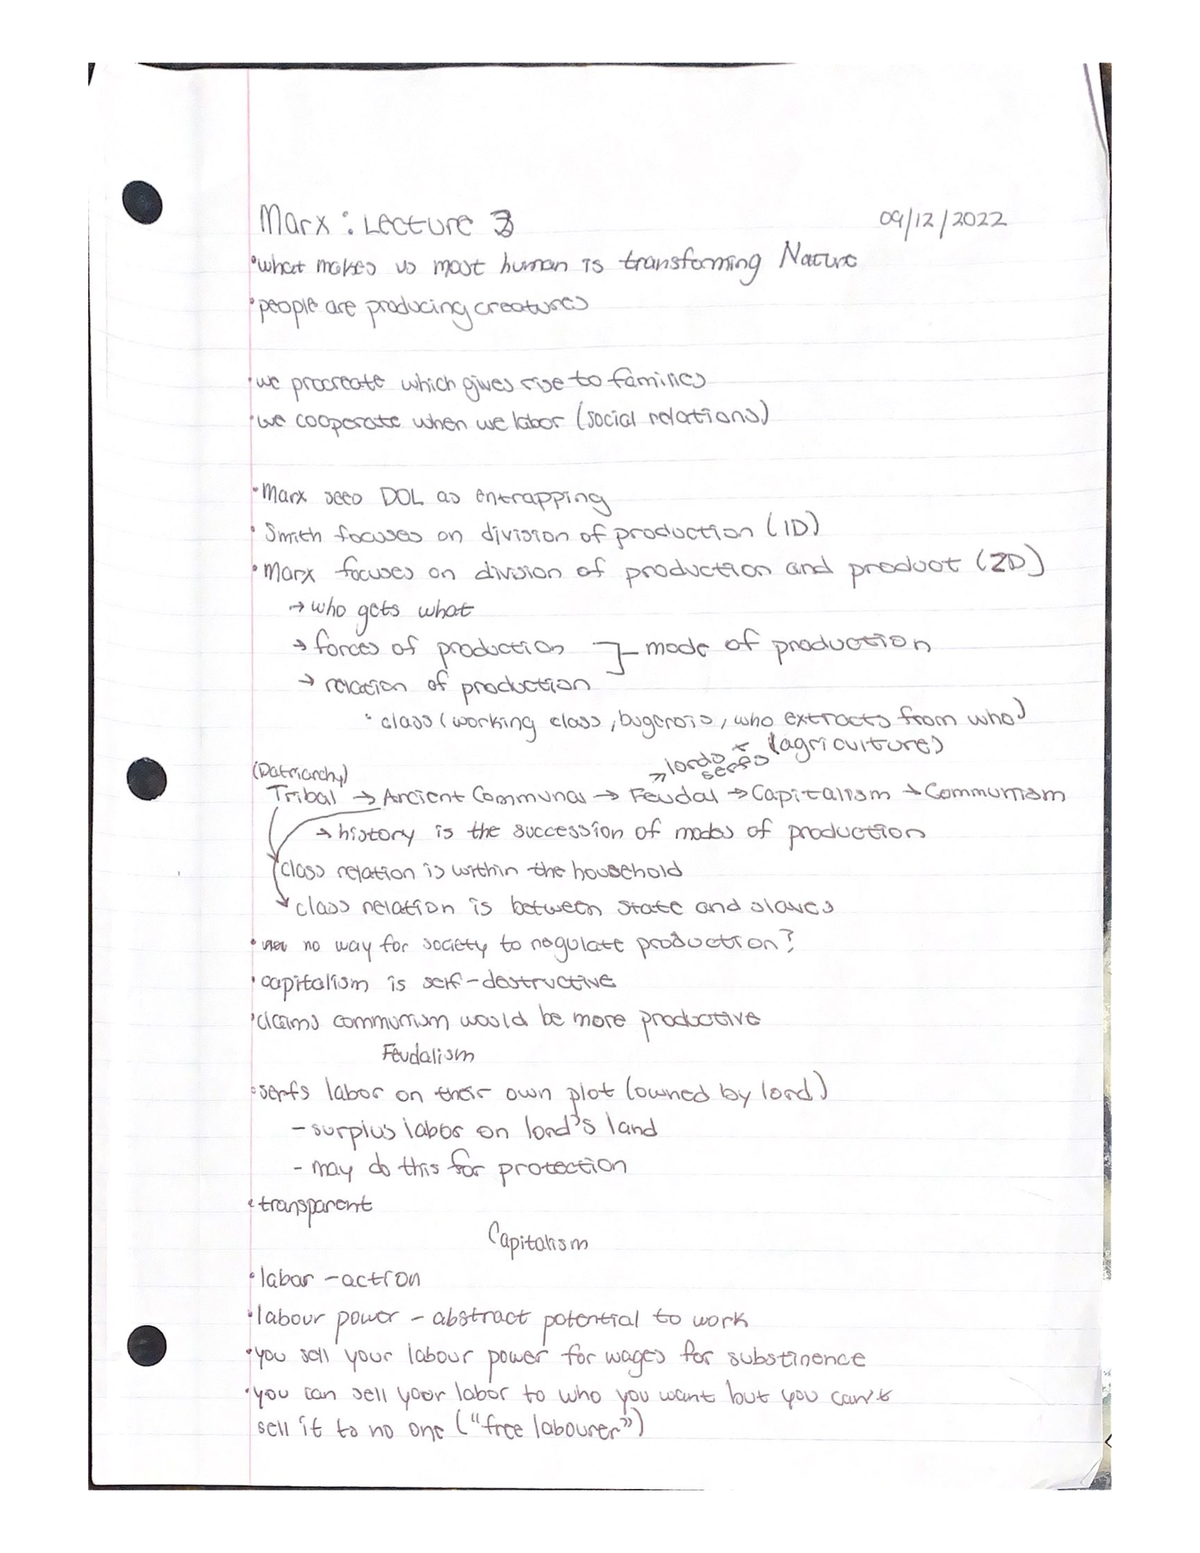 Marx: Lecture 3 09/12/2022
•what makes us most human is transforming Nature
•people are producing creatures
•we procreate which gives rise to families
•we cooperate when we labor (social relations)
•Marx sees DOL as entrapping
•Smith focuses on division of production (1D)
•Marx focuses on division of production and product (2D)
→ who gets what
→ forces of production } mode of production
→ relation of production
•class (working class, bugerois, who extracts from who)
→ lords + serfs (agriculture)
(Patriarchy)
Tribal → Ancient Communal → Feudal → Capitalism → Communism
→ history is the succession of modes of production
class relation is within the household
class relation is between state and slaves
• no way for society to regulate production?
•capitalism is self-destructive
•claims communism would be more productive
Feudalism
•serfs labor on their own plot (owned by lord)
- surplus labor on lord's land
- may do this for protection
•transparent
Capitalism
•labor - action
•labour power - abstract potential to work
•you sell your labour power for wages for substinence
•you can sell your labor to who you want but you can't
sell it to no one ("free labourer")